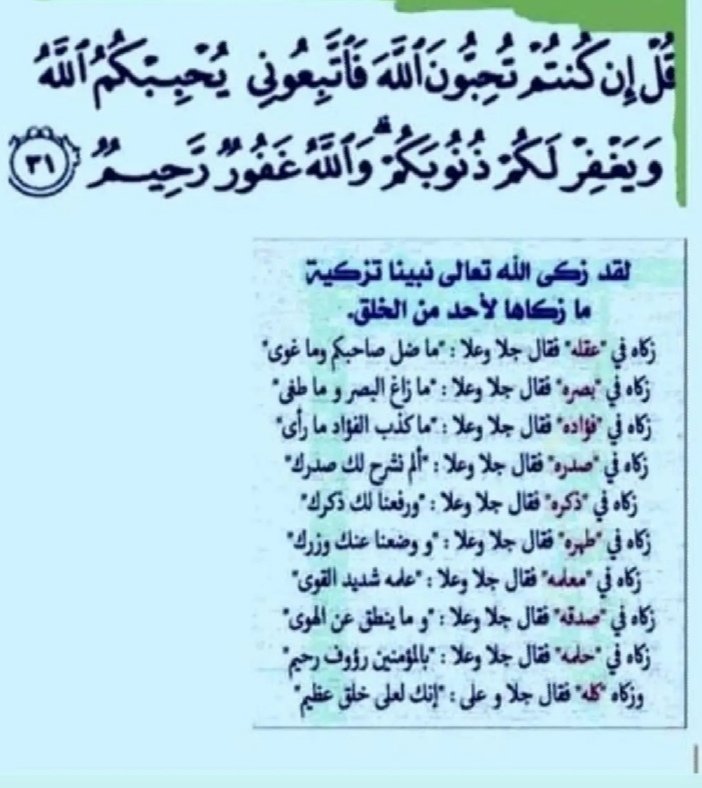 قُلْ إِن كُنتُمْ تُحِبُّونَ ٱللَّهَ فَٱتَّبِعُونِي يُحْبِبْكُمُ ٱللَّهُ
وَيَغْفِرْ لَكُمْ ذُنُوبَكُمْ ۗ وَٱللَّهُ غَفُورٌ رَّحِيمٌ ٣١
لقد زكى الله تعالى نبينا تزكية
ما زكاها لأحد من الخلق.
زكاه في "عقله" فقال جلا وعلا : "ما ضل صاحبكم وما غوى"
زكاه في "بصره" فقال جلا وعلا : "ما زاغ البصر و ما طغى"
زكاه في "فؤاده" فقال جلا وعلا : "ما كذب الفؤاد ما رأى"
زكاه في "صدره" فقال جلا وعلا : "ألم نشرح لك صدرك"
زكاه في "ذكره" فقال جلا وعلا : "ورفعنا لك ذكرك"
زكاه في "طهره" فقال جلا وعلا : "و وضعنا عنك وزرك"
زكاه في "معلمه" فقال جلا وعلا : "علمه شديد القوى"
زكاه في "صدقه" فقال جلا وعلا : "و ما ينطق عن الهوى"
زكاه في "حلمه" فقال جلا وعلا : "بالمؤمنين رؤوف رحيم"
وزكاه "كله" فقال جلا و على : "إنك لعلى خلق عظيم"